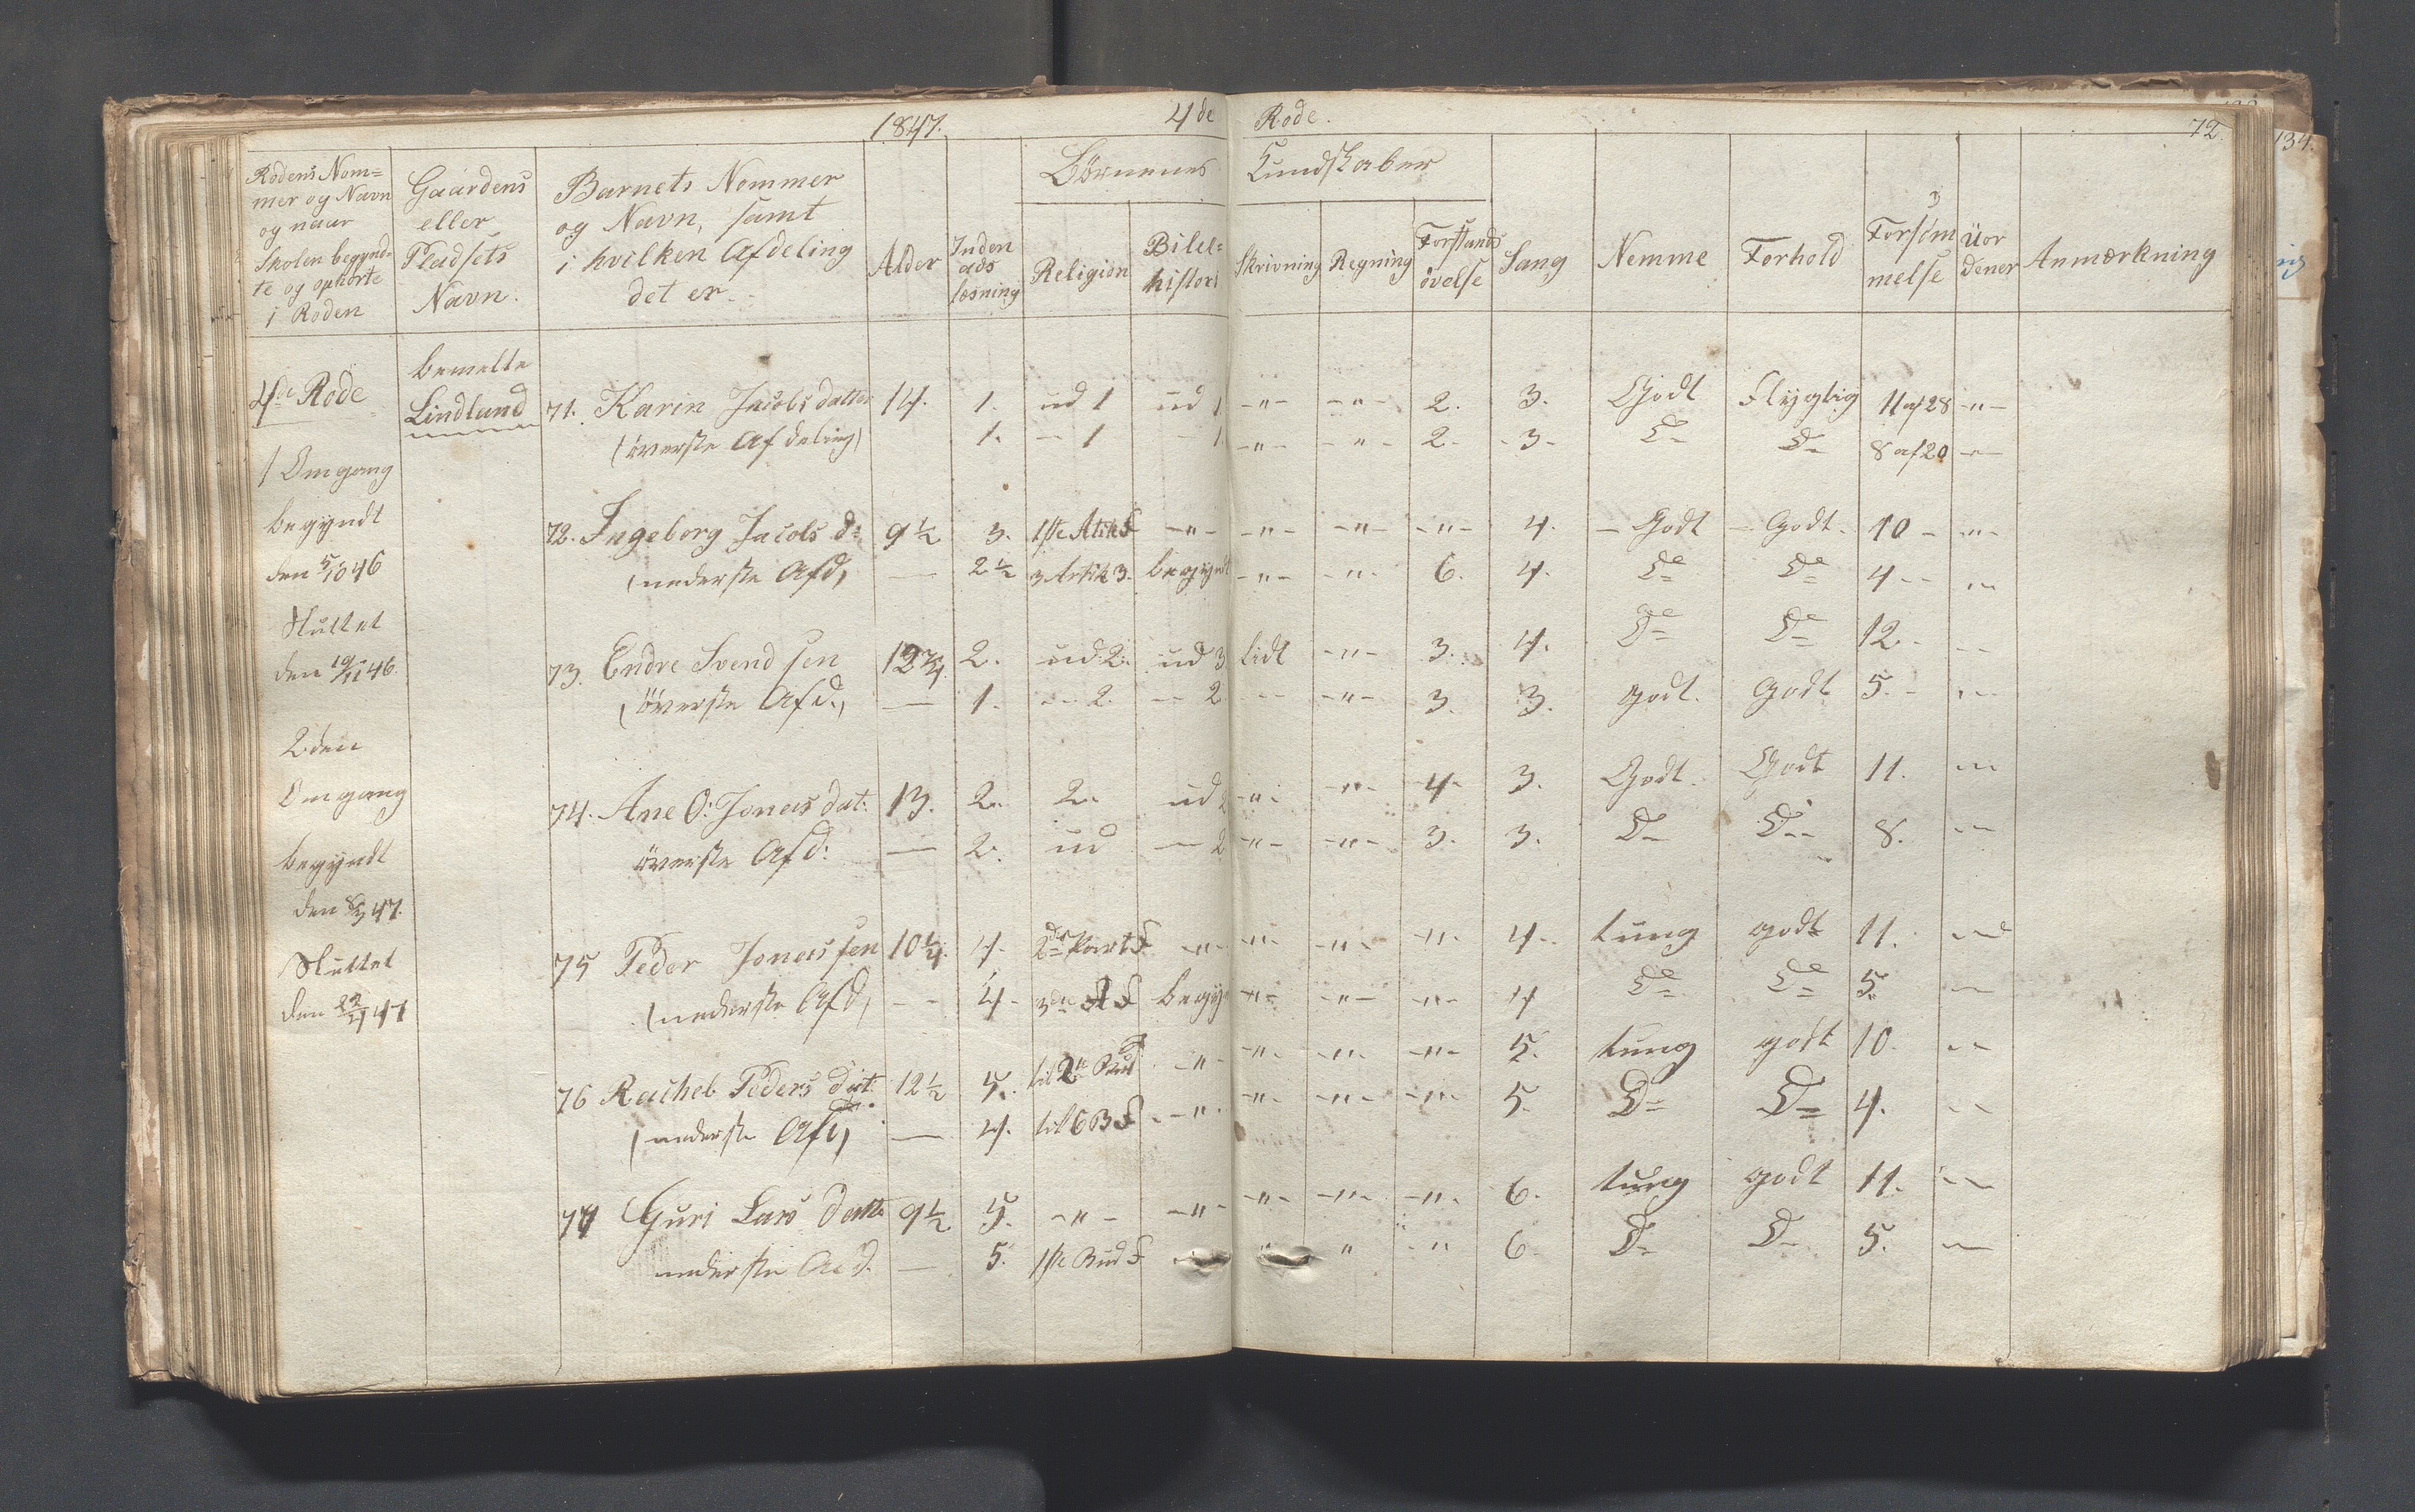 1847. 4de Rode. 72.
134.
Rodens Nom= mer og Navn og naar Skolen begynd= te og ophørte i Roden
Gaardens eller Pladsets Navn.
Barnets Nommer og Navn, samt i hvilken Afdeling det er.
Alder
Inden ads læsning
Børnenes Kundskaber
Religion
Bibel= histori
Skrivning
Regning
Forstands øvelse
Sang
Nemme
Forhold
Forsøm melse
Uor dener
Anmærkning
4de Rode
1 Omgang
begyndt
den 5/10 46
Sluttet
den 19/11 46.
2den
Omgang
begyndt
den 8/3 47.
Sluttet
den 22/4 47
bemelte
Lindland
71. Karin Jacobs datter 14. 1. ud 1 ud 1 -"- -"- 2. 3. Godt Flygtig 11 af 28 -"-
(øverste Afdeling) 1. - 1 - 1. -"- -"- 2. -3- D- D- 8 af 20 -"-
72. Ingeborg Jacobs d: 9½ 3. 1ste Artik F -"- -"- -"- -"- 4. - Godt - Godt. 10 - -"-
(nederste Afd) — 2½ 3 Artik 3. begyndt -"- -"- 6. 4. De De 4 - - -"-
73. Endre Svendsen 12¾ 2. ud: 2. ud 3 lidt -"- 3. 4. De De 12. - -
(øverste Afd.) — 1. - 2. - 2 - -"- 3. 3. godt. Godt 5. - -"-
74. Ane O: Jonas dat: 13. 2. 2. ud 2 -"- -"- 4. 3. Godt. Godt 11. -"-
øverste Afd: — 2. ud — 2 -"- -"- 3. 3. D- D- 8. -"-
75 Peder Jonassen 10¼. 4. 2de Part F -"- -"- -"- -"- 4. tung godt 11. -"-
(nederste Afd) - - 4. 3de A F begy -"- -"- -"- 4 De De 5. -"-
76 Rachel Peders dat: 12½ 5. til 2de Bud F -"- -"- -"- -"- 5. tung godt 10. - -
(nederste Afd) — 4. til 6 B F -"- -"- -"- -"- 5. D- D- 4. - -
77 Guri Lars datter 9½ 5. -"- -"- -"- -"- -"- 6. tung godt 11. -"-
nederste Afd. — 5. 1ste Bud F - " " -" 6. D- D- 5. -"-